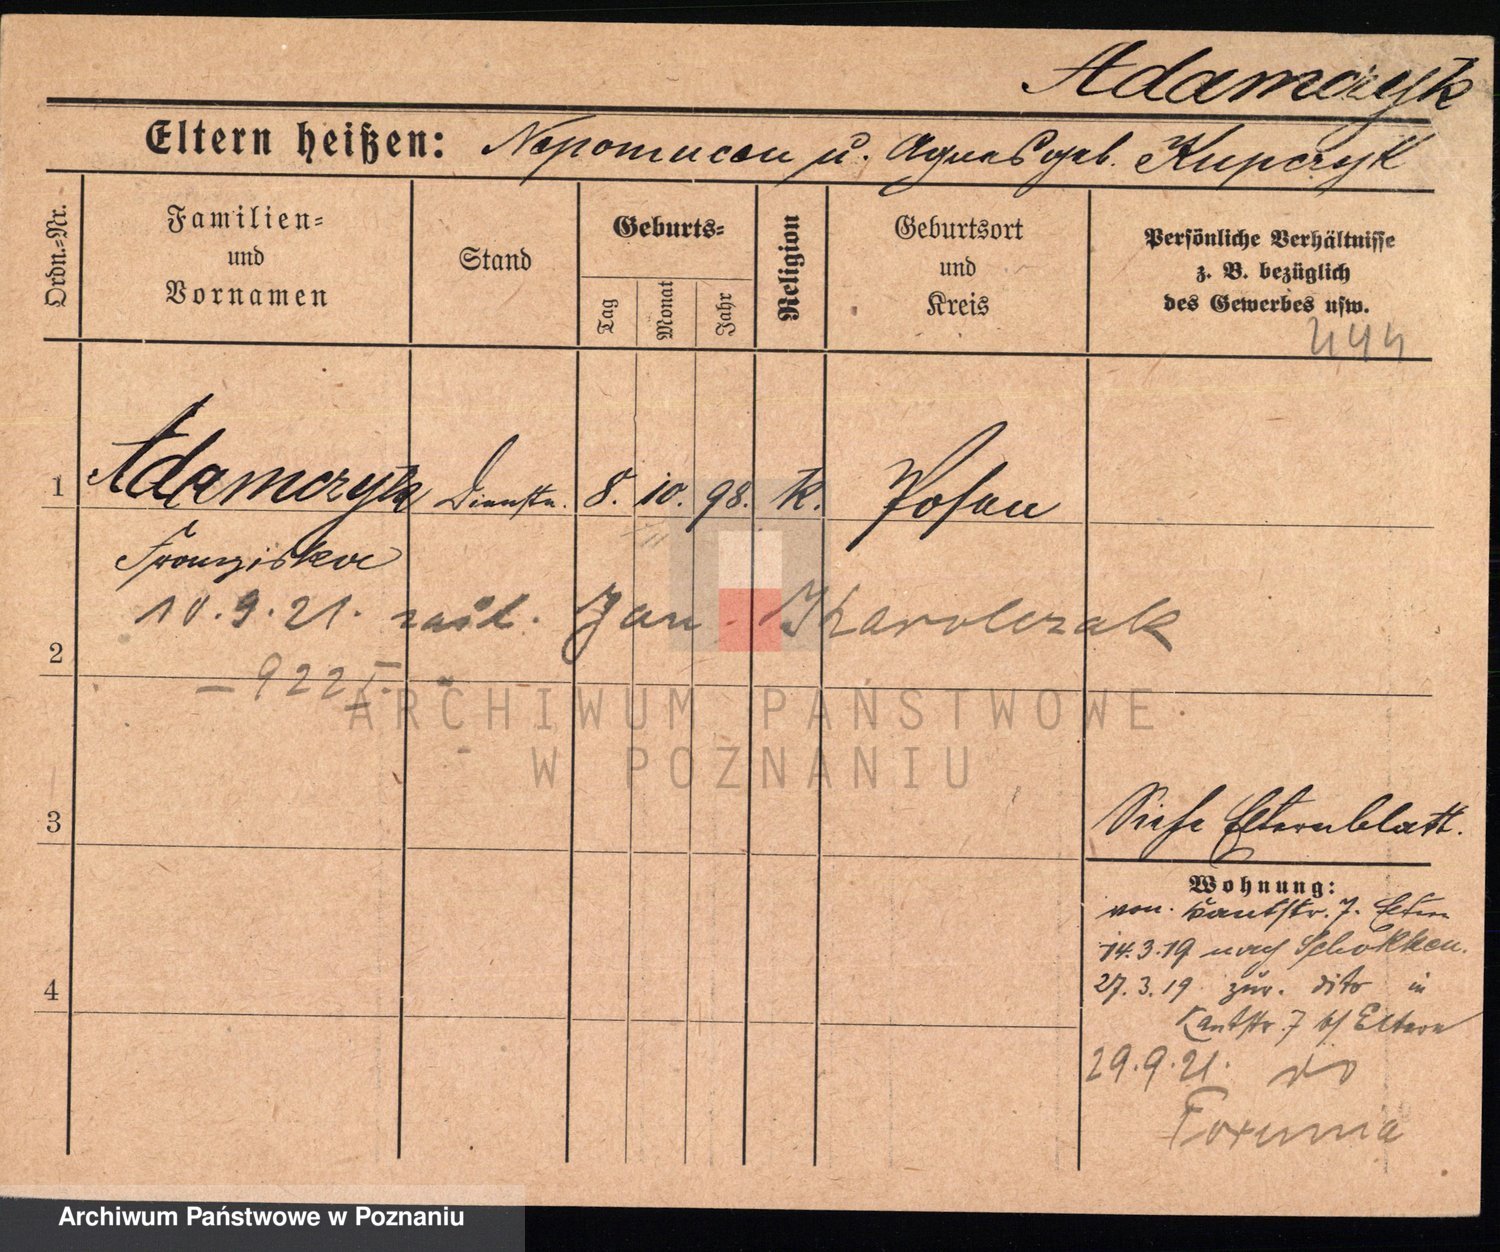 Adamczyk
Eltern heißen: Nepomucen u. Agnes geb. Kupczyk
Ordn.-Nr.
Familien- und Vornamen
Stand
Geburts-
Tag
Monat
Jahr
Religion
Geburtsort und Kreis
Persönliche Verhältnisse
z. B. bezüglich
des Gewerbes usw.
444
1 Adamczyk Dienstm. 8. 10. 98. K. Posen
Franziska
10.9.21. zaśl. Jan Karolczak
2
– 922 I.
ARCHIWUM PAŃSTWOWE
W POZNANIU
3
Siehe Elternblatt.
Wohnung:
von Kantstr. 7. Eltern
14.3.19 nach Schokken.
4
27.3.19 zur. dito in
Kantstr. 7 b/ Eltern
29.9.21. do
Torunia
Archiwum Państwowe w Poznaniu